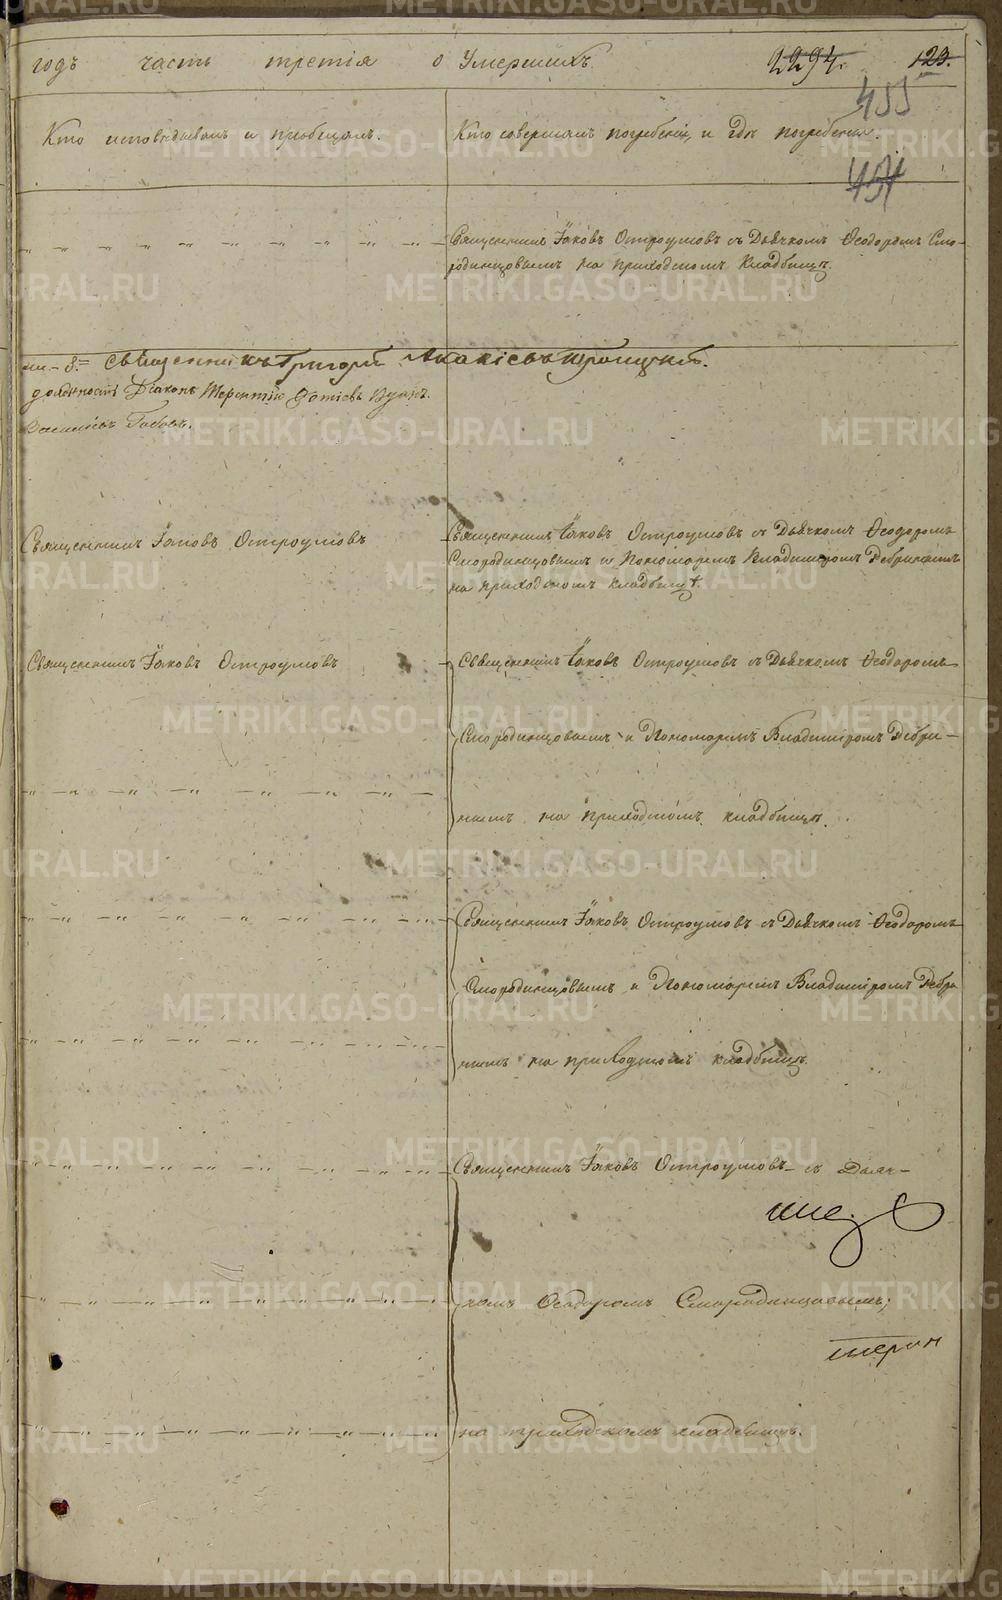 годъ часть третія о Умершихъ 2294. 123.
455
Кто исповѣдывалъ и пріобщалъ. Кто совершалъ погребеніе, и гдѣ погребены.
454
Священникъ Іаковъ Остроумовъ съ Дьячкомъ Ѳеодоромъ Смо-
родинцовымъ на приходскомъ кладбищѣ.
Священникъ Григорій Акакіевъ Троицкій.
должности Діаконъ Терентій
Василій
Священникъ Іаковъ Остроумовъ
Священникъ Іаковъ Остроумовъ съ Дьячкомъ Ѳеодоромъ
Смородинцовымъ и Пономаремъ Владиміромъ Дебринымъ
на приходскомъ кладбищѣ.
Священникъ Іаковъ Остроумовъ
Священникъ Іаковъ Остроумовъ съ Дьячкомъ Ѳеодоромъ
Смородинцовымъ и Пономаремъ Владиміромъ Дебри-
нымъ на приходскомъ кладбищѣ.
Священникъ Іаковъ Остроумовъ съ Дьячкомъ Ѳеодоромъ
Смородинцовымъ и Пономаремъ Владиміромъ Дебри
нымъ на приходскомъ кладбищѣ.
Священникъ Іаковъ Остроумовъ съ Дьяч-
комъ Ѳеодоромъ Смородинцовымъ;
на приходскомъ кладбищѣ.
METRIKI.GASO-URAL.RU